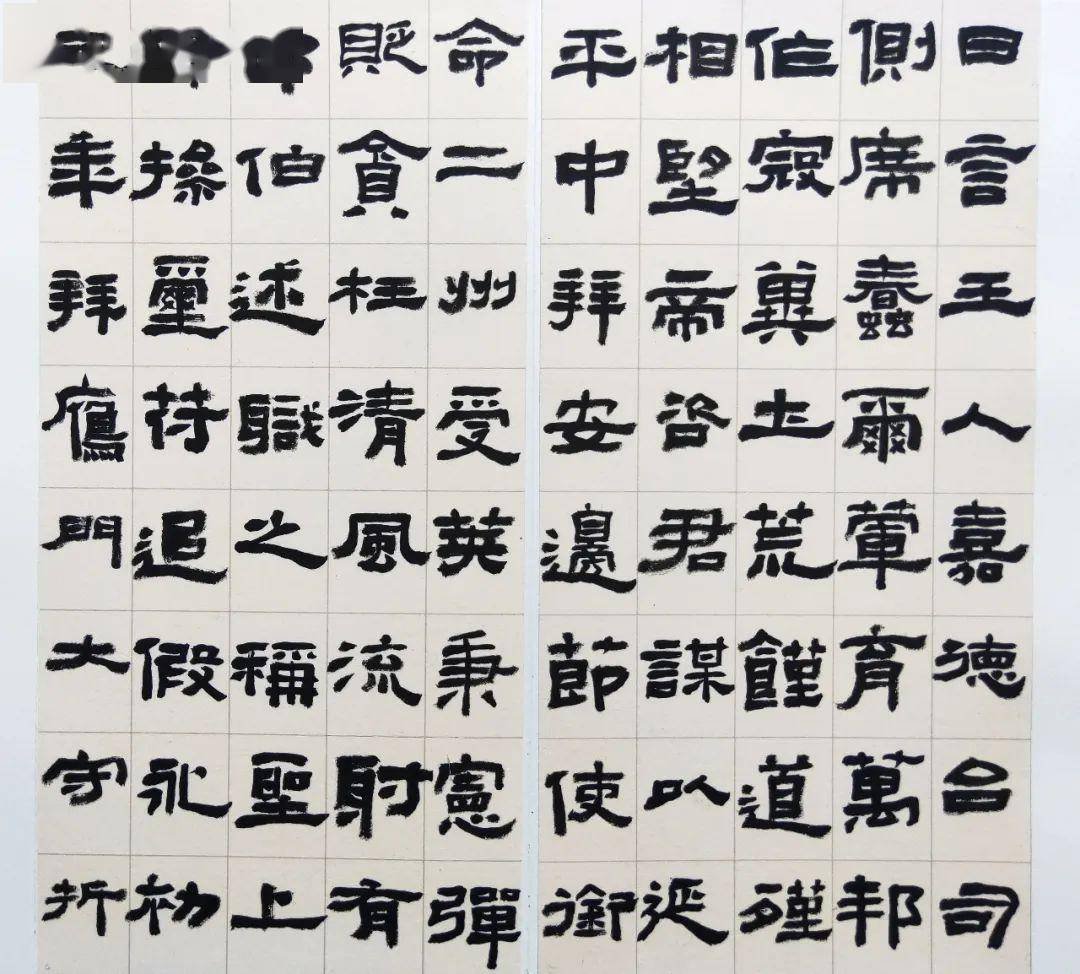 曰言王人嘉德台司
側席蠢爾葷育萬邦
作寇冀土荒饉道殣
相望帝咨君謀以延
平中拜安邊節使銜
命二州受莢秉憲彈
貶貪枉清風流射有
伯述職之稱聖上
操璽符追假永初
年拜鴈門大守折